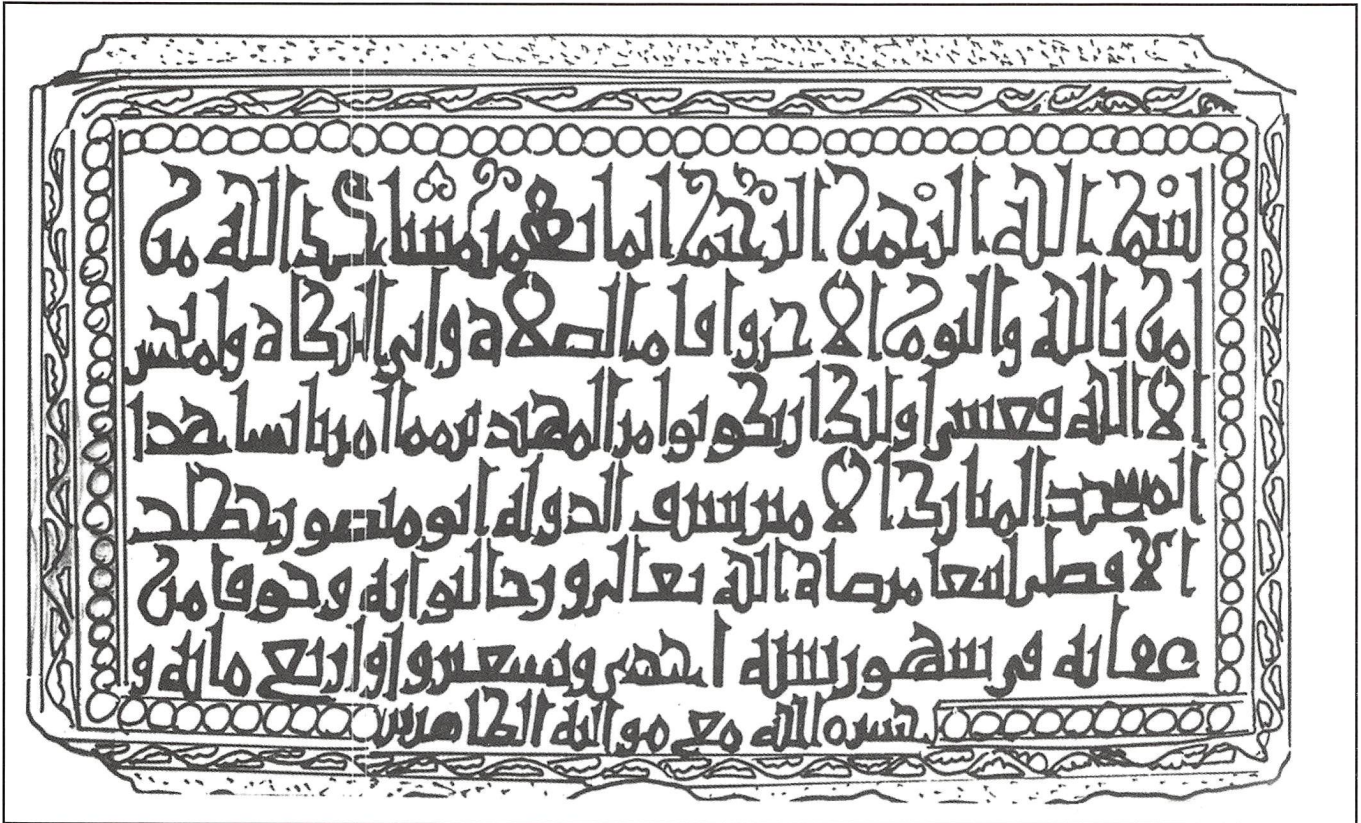 بسم الله الرحمن الرحيم انما يعمر مساجد الله من
امن بالله واليوم الاخر واقام الصلاة واتى الزكاة ولم يخش
الا الله فعسى اولئك ان يكونوا من المهتدين مما امر بانشا هذا
المسجد المبارك الامير الدولة ابو منصور خطلخ
الافضلي ابتغا مرضاة الله تعالى ورجا لثوابه وخوفا من
عقابه في شهور سنة وتسعين واربع مائة و
حشره الله مع مواليه الطاهرين